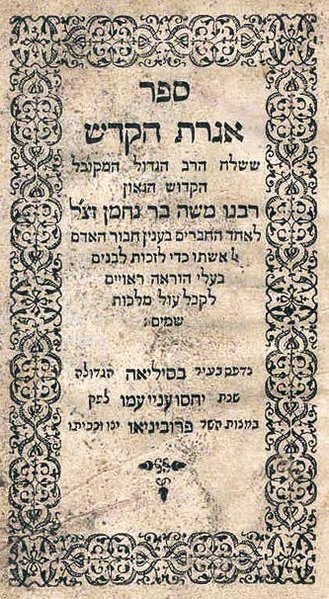 ספר
אגרת הקדש
ששלח הרב הגדול המקובל
הקדוש הגאון
רבנו משה בר נחמן זצ״ל
לאחד החברים בענין חבור האדם
אל אשתו כדי לזכות לבנים
בעלי הוראה ראויים
לקבל עול מלכות
שמים:
נדפס בעיר בסיליאה הגדולה
שנת יחסו עניי עמו לפק
במצות השר פרוביניאו